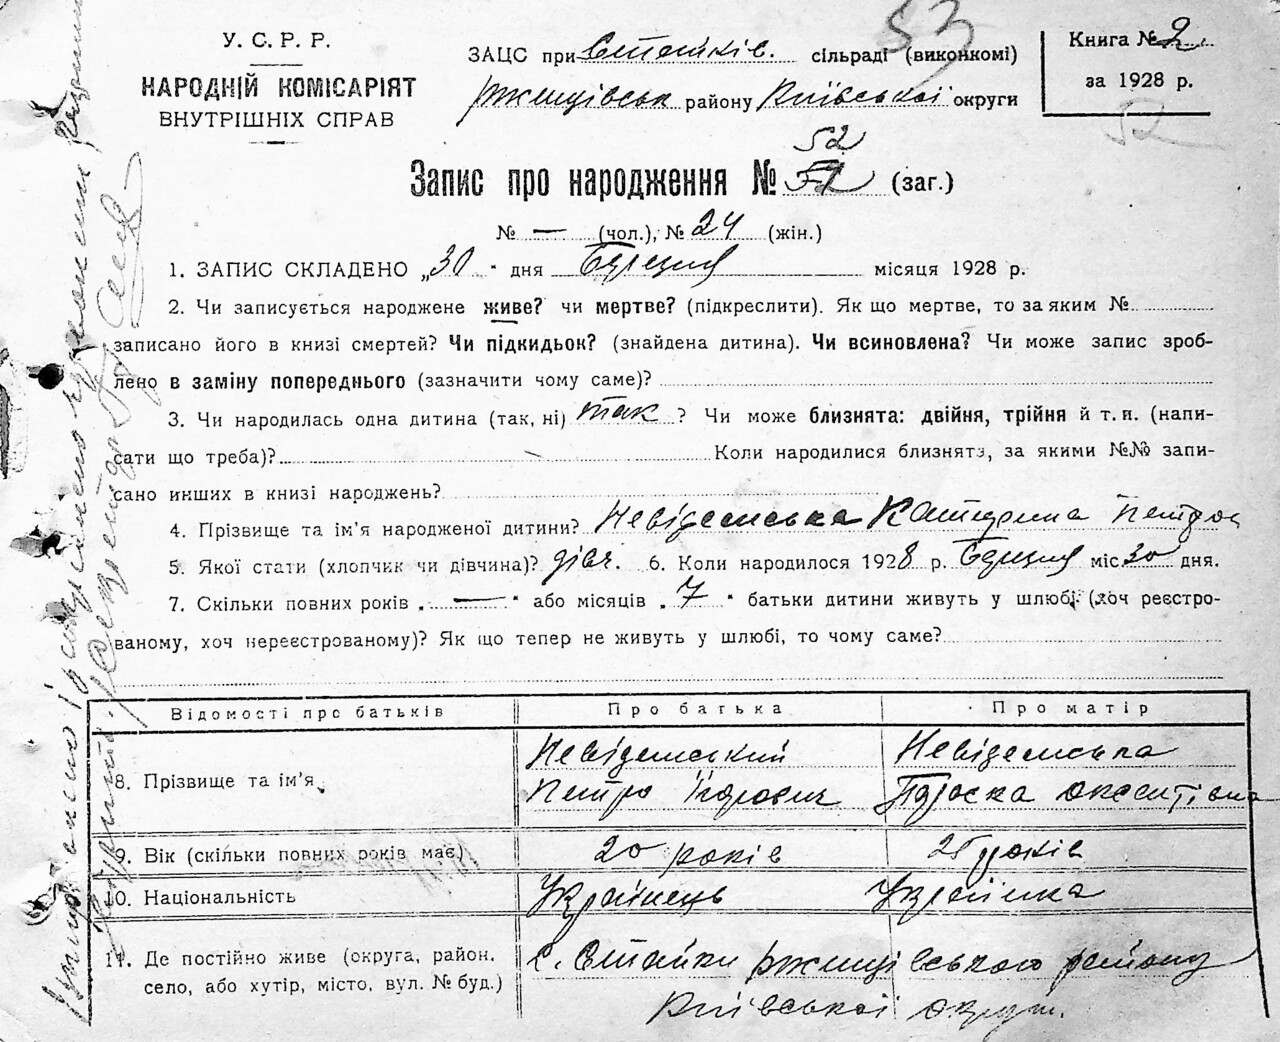 53
У. С. Р. Р.
НАРОДНІЙ КОМІСАРІЯТ
ВНУТРІШНІХ СПРАВ
ЗАЦС при Стайків. сільраді (виконкомі)
Ржищівськ району Київської округи
Книга № 2
за 1928 р.
52
52
Запис про народження № (заг.)
№ — (чол.), № 24 (жін.)
1. ЗАПИС СКЛАДЕНО „30" дня Березня місяця 1928 р.
2. Чи записується народжене живе? чи мертве? (підкреслити). Як що мертве, то за яким №
записано його в книзі смертей? Чи підкидьок? (знайдена дитина). Чи всиновлена? Чи може запис зроб-
лено в заміну попереднього (зазначити чому саме)?
3. Чи народилась одна дитина (так, ні) так ? Чи може близнята: двійня, трійня й т. п. (напи-
сати що треба)? Коли народилися близнята, за якими №№ запи-
сано инших в книзі народжень?
4. Прізвище та ім'я народженої дитини? Невідемська Катерина Петров
5. Якої стати (хлопчик чи дівчина)? дівч. 6. Коли народилося 1928 р. Березня міс 30 дня.
7. Скільки повних років „—" або місяців „7" батьки дитини живуть у шлюбі (хоч реєстро-
ваному, хоч нереєстрованому)? Як що тепер не живуть у шлюбі, то чому саме?
Відомості про батьків Про батька Про матір
8. Прізвище та ім'я Невідемський Невідемська
Петро Ігорович
9. Вік (скільки повних років має) 20 років 21 років
10. Національність Українець Українка
11. Де постійно живе (округа, район, село, або хутір, місто, вул. № буд.) с. Стайки Ржищівського району
Київської округи.